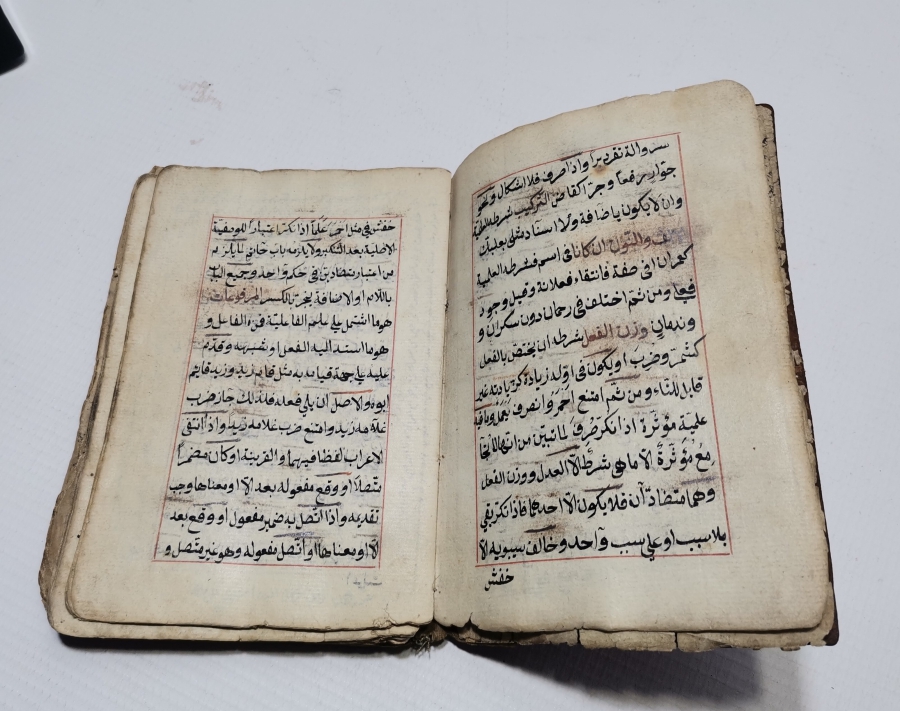 سروالة نقديرا واذا صرف فلا اشكال ونحو
جوار رفعا وجرا كقاض التركيب شرطه العلمية
وان لا يكون باضافة ولا اسناد مثل بعلبك
الف والنون ان كانا فى اسم فشرطه العلمية
كعمران او فى صفة فانتفاء فعلانة وقيل وجود
فعلى ومن ثم اختلف فى رحمان دون سكران و
وندمان وزن الفعل شرطه ان يختص بالفعل
كشمر وضرب او يكون فى اوله زيادة كزيادته غير
قابل للتاء ومن ثم امتنع احمر وانصرف يعمل وما فيه
علمية مؤثرة اذا نكر صرف لما تبين من انها لا تجا
مع مؤثرة الا ما هى شرط الا العدل ووزن الفعل
وهما متضادان فلا يكون الا احدهما فاذا نكر بقي
بلا سبب او على سبب واحد وخالف سيبويه الا
خفش
خفش في مثل احمر علما اذا نكر اعتبارا للوصفية
الاصلية بعد التنكير ولا يلزمه باب خاتم لما يلزم
من اعتبار متضادين في حكم واحد وجميع الباب
باللام او الاضافة ينجر بالكسر المرفوعات
هو ما اشتمل على علم الفاعلية فمنه الفاعل و
هو ما اسند اليه الفعل او شبهه وقدم
عليه على جهة قيامه به مثل قام زيد وزيد قايم
ابوه والاصل ان يلي فعله فلذلك جاز ضرب
غلامه زيد وامتنع ضرب غلامه زيدا واذا انتفى
الاعراب لفظا فيهما والقرينة او كان مضمرا
متصلا او وقع مفعوله بعد الا او معناها وجب
تقديمه واذا اتصل به ضمير مفعول او وقع بعد
الا او معناها او اتصل مفعوله وهو غير متصل و